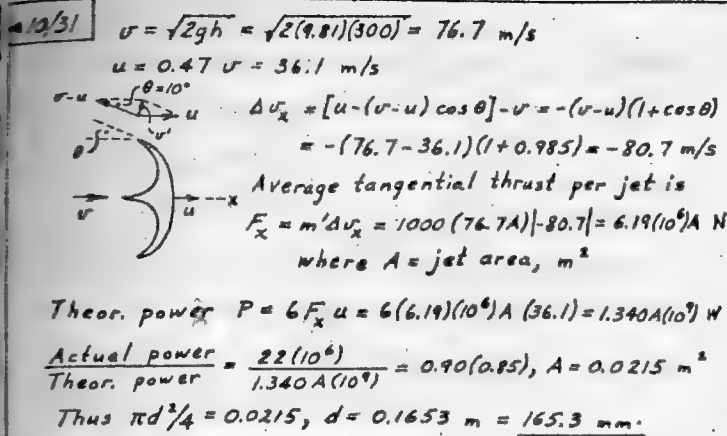 10/31
v = √2gh = √2(9.81)(300) = 76.7 m/s
u = 0.47 v = 36.1 m/s
θ=10°
v-u
u
v'
θ
v
u
x
Δv_x = [u-(v-u) cos θ]-v = -(v-u)(1+cosθ)
= -(76.7-36.1)(1+0.985) = -80.7 m/s
Average tangential thrust per jet is
F_x = m'Δv_x = 1000 (76.7A)|-80.7| = 6.19(10⁶)A N
where A = jet area, m²
Theor. power P = 6 F_x u = 6(6.19)(10⁶)A (36.1) = 1.340A(10⁹) W
Actual power / Theor. power = 22(10⁶) / 1.340 A(10⁹) = 0.90(0.85), A = 0.0215 m²
Thus πd²/4 = 0.0215, d = 0.1653 m = 165.3 mm.